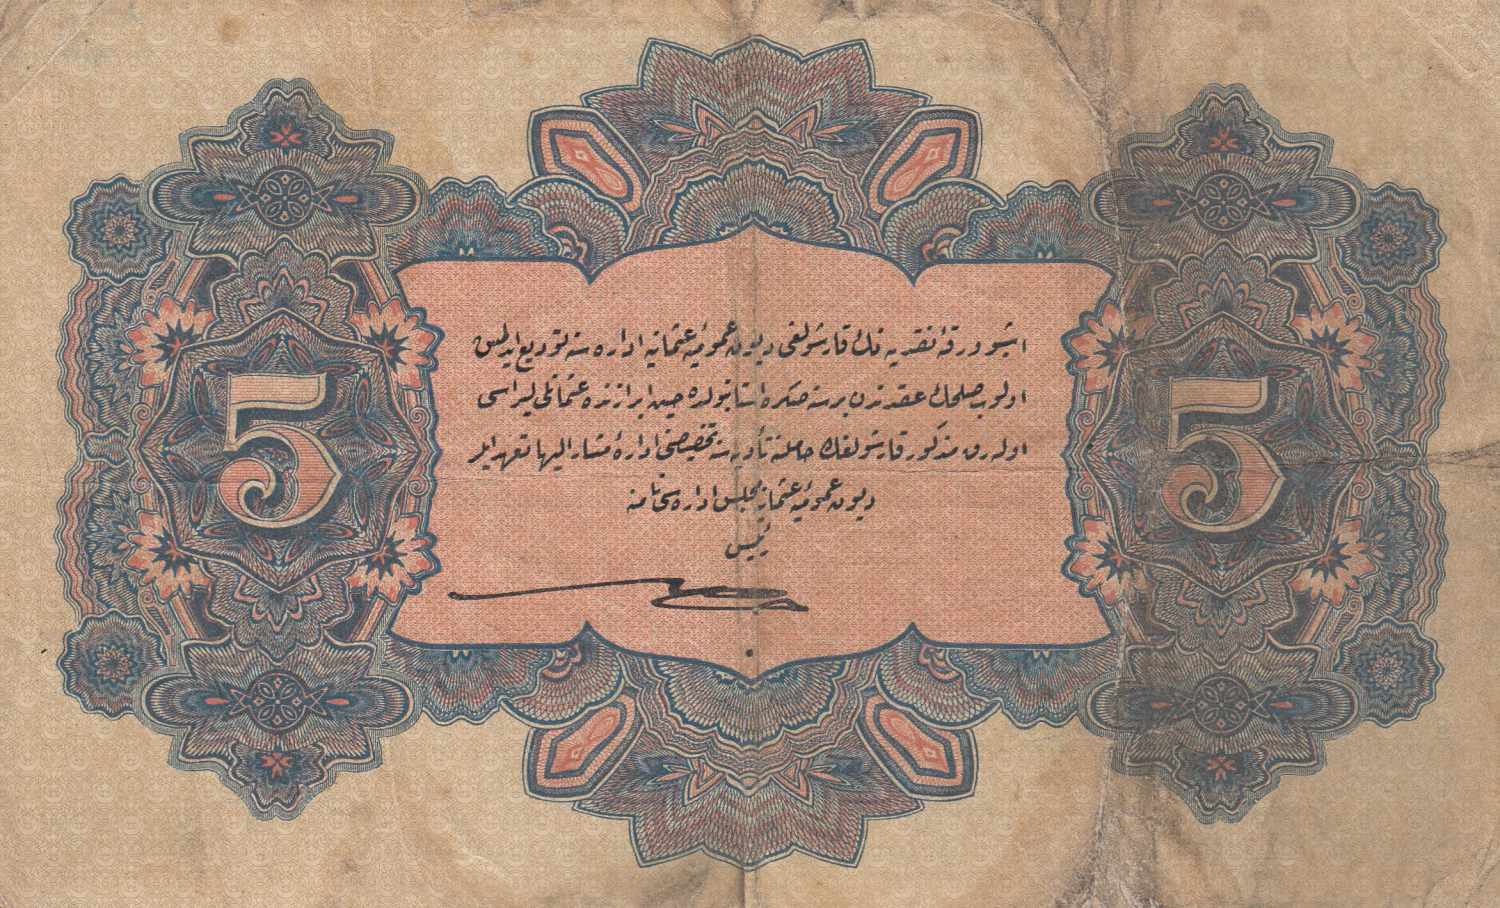 5
اشبو ورقهٔ نقديه نك قارشولغى ديون عموميهٔ عثمانيه اداره سنه توديع ايدلمش
اولوب صلحك عقدندن بر سنه صكره استانبولده حين ابرازنده عثمانلى ليراسى
اوله رق مذكور قارشولغك حاملنه تأديه سنه تخصيصنى ادارهٔ مشار اليها تعهد ايلر
ديون عموميهٔ عثمانيه مجلس اداره سى نامنه
رئيس
5